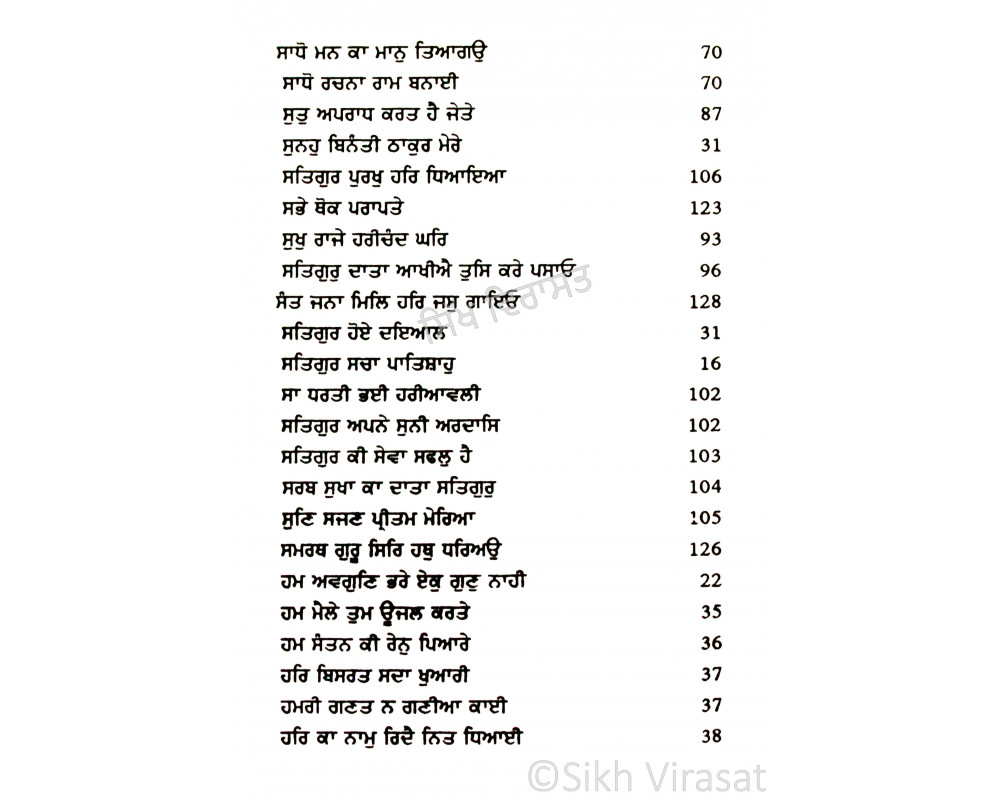 ਸਾਧੋ ਮਨ ਕਾ ਮਾਨੁ ਤਿਆਗਉ 70
ਸਾਧੋ ਰਚਨਾ ਰਾਮ ਬਨਾਈ 70
ਸੁਤੁ ਅਪਰਾਧ ਕਰਤ ਹੈ ਜੇਤੇ 87
ਸੁਨਹੁ ਬਿਨੰਤੀ ਠਾਕੁਰ ਮੇਰੇ 31
ਸਤਿਗੁਰ ਪੁਰਖੁ ਹਰਿ ਧਿਆਇਆ 106
ਸਭੇ ਥੋਕ ਪਰਾਪਤੇ 123
ਸੁਖੁ ਰਾਜੇ ਹਰੀਚੰਦ ਘਰਿ 93
ਸਤਿਗੁਰੁ ਦਾਤਾ ਆਖੀਐ ਤੁਸਿ ਕਰੇ ਪਸਾਓ 96
ਸੰਤ ਜਨਾ ਮਿਲਿ ਹਰਿ ਜਸੁ ਗਾਇਓ 128
ਸਤਿਗੁਰ ਹੋਏ ਦਇਆਲ 31
ਸਤਿਗੁਰ ਸਚਾ ਪਾਤਿਸ਼ਾਹੁ 16
ਸਾ ਧਰਤੀ ਭਈ ਹਰੀਆਵਲੀ 102
ਸਤਿਗੁਰ ਅਪਨੇ ਸੁਨੀ ਅਰਦਾਸਿ 102
ਸਤਿਗੁਰ ਕੀ ਸੇਵਾ ਸਫਲੁ ਹੈ 103
ਸਰਬ ਸੁਖਾ ਕਾ ਦਾਤਾ ਸਤਿਗੁਰੁ 104
ਸੁਣਿ ਸਜਣ ਪ੍ਰੀਤਮ ਮੇਰਿਆ 105
ਸਮਰਥ ਗੁਰੂ ਸਿਰਿ ਹਥੁ ਧਰਿਅਉ 126
ਹਮ ਅਵਗੁਣਿ ਭਰੇ ਏਕੁ ਗੁਣੁ ਨਾਹੀ 22
ਹਮ ਮੈਲੇ ਤੁਮ ਊਜਲ ਕਰਤੇ 35
ਹਮ ਸੰਤਨ ਕੀ ਰੇਨੁ ਪਿਆਰੇ 36
ਹਰਿ ਬਿਸਰਤ ਸਦਾ ਖੁਆਰੀ 37
ਹਮਰੀ ਗਣਤ ਨ ਗਣੀਆ ਕਾਈ 37
ਹਰਿ ਕਾ ਨਾਮੁ ਰਿਦੈ ਨਿਤ ਧਿਆਈ 38
ਸਿੱਖ ਵਿਰਾਸਤ
©Sikh Virasat